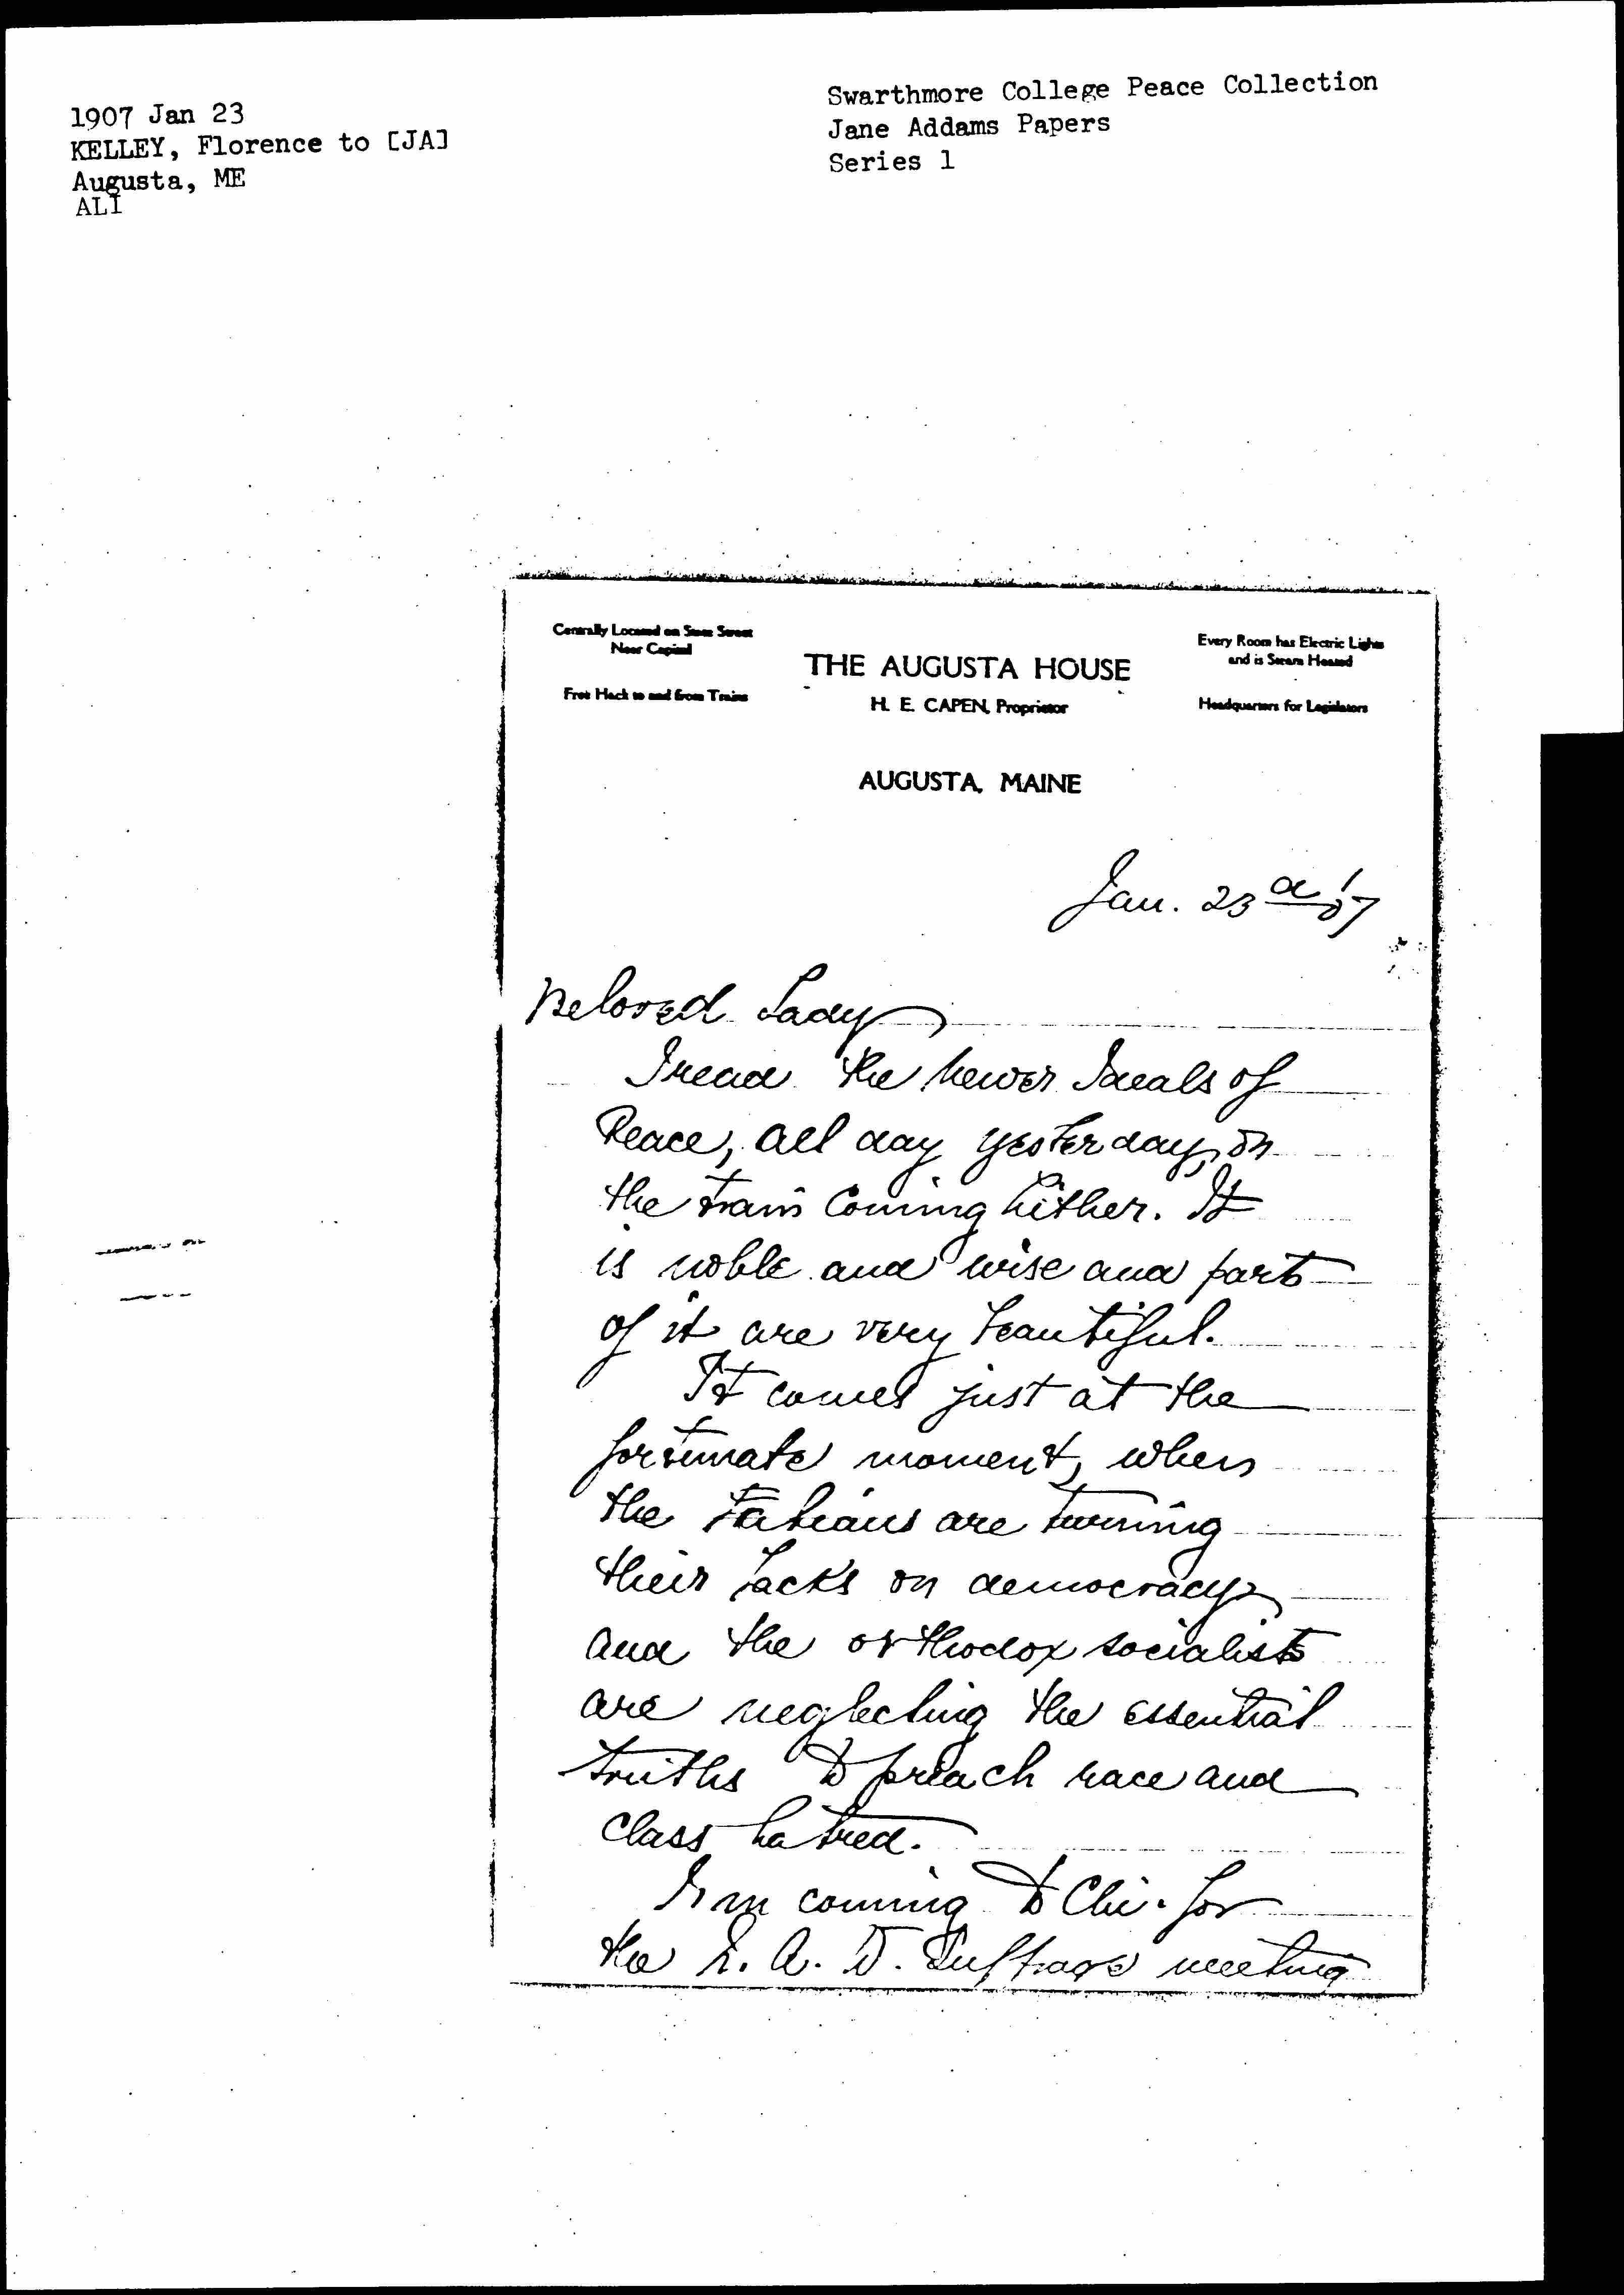 1907 Jan 23
KELLEY, Florence to [JA]
Augusta, ME
ALI
Swarthmore College Peace Collection
Jane Addams Papers
Series 1
Centrally Located on State Street
Near Capitol
Free Hack to and from Trains
THE AUGUSTA HOUSE
H. E. CAPEN, Proprietor
Every Room has Electric Lights
and is Steam Heated
Headquarters for Legislators
AUGUSTA, MAINE
Jan. 23d '07
Beloved Lady
I read the Newer Ideals of
Peace, all day yesterday, on
the train coming hither. It
is noble and wise and parts
of it are very beautiful.
It comes just at the
fortunate moment, when
the Fabians are turning
their backs on democracy
and the orthodox socialists
are neglecting the essential
truths to preach race and
class hatred.
I'm coming to Chi. for
the N. A. W. Suffrage meeting